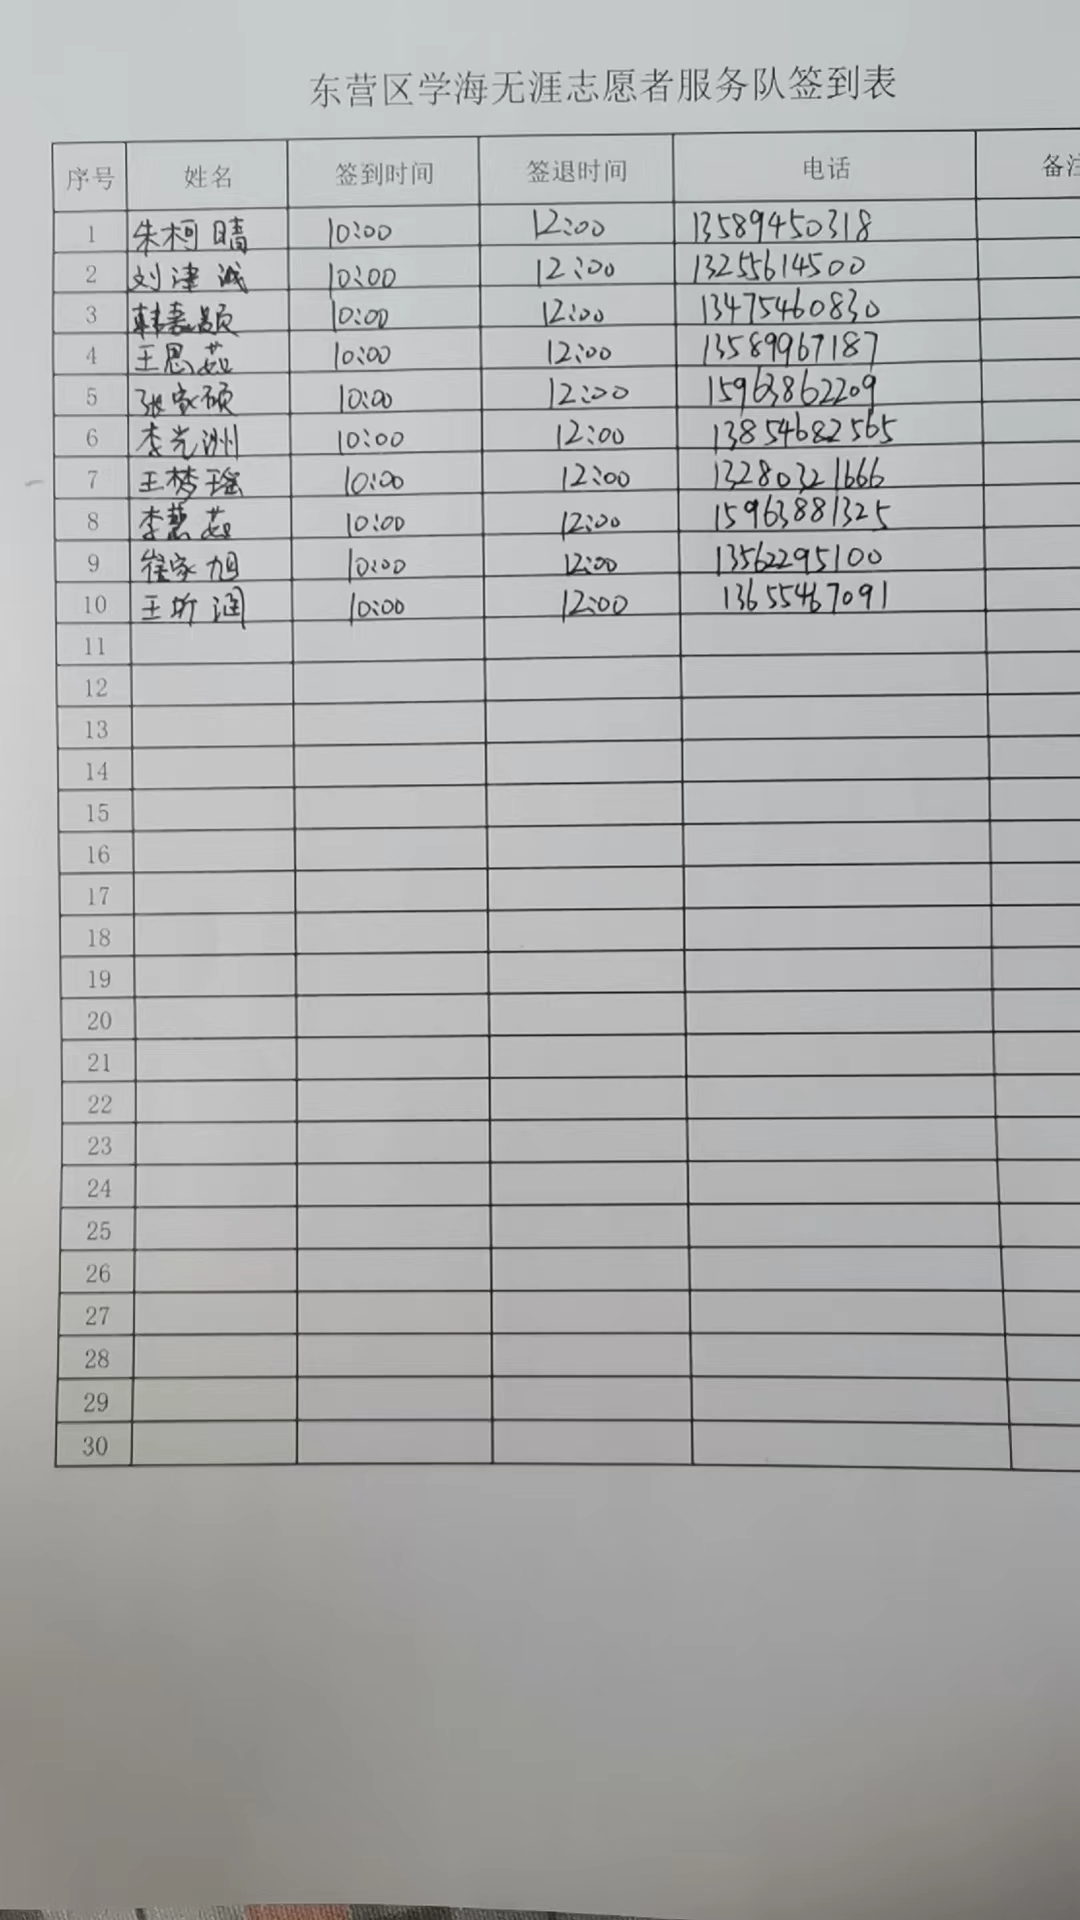 东营区学海无涯志愿者服务队签到表
序号 姓名 签到时间 签退时间 电话 备注
1 朱柯晴 10:00 12:00 13589450318
2 刘津诚 10:00 12:00 13255614500
3 韩嘉颖 10:00 12:00 13475460830
4 王思茹 10:00 12:00 13589967187
5 张家硕 10:00 12:00 15963862209
6 李光洲 10:00 12:00 13854682565
7 王梦瑶 10:00 12:00 13280321666
8 李慧茹 10:00 12:00 15963881325
9 崔家旭 10:00 12:00 13562295100
10 王昕润 10:00 12:00 13655467091
11
12
13
14
15
16
17
18
19
20
21
22
23
24
25
26
27
28
29
30